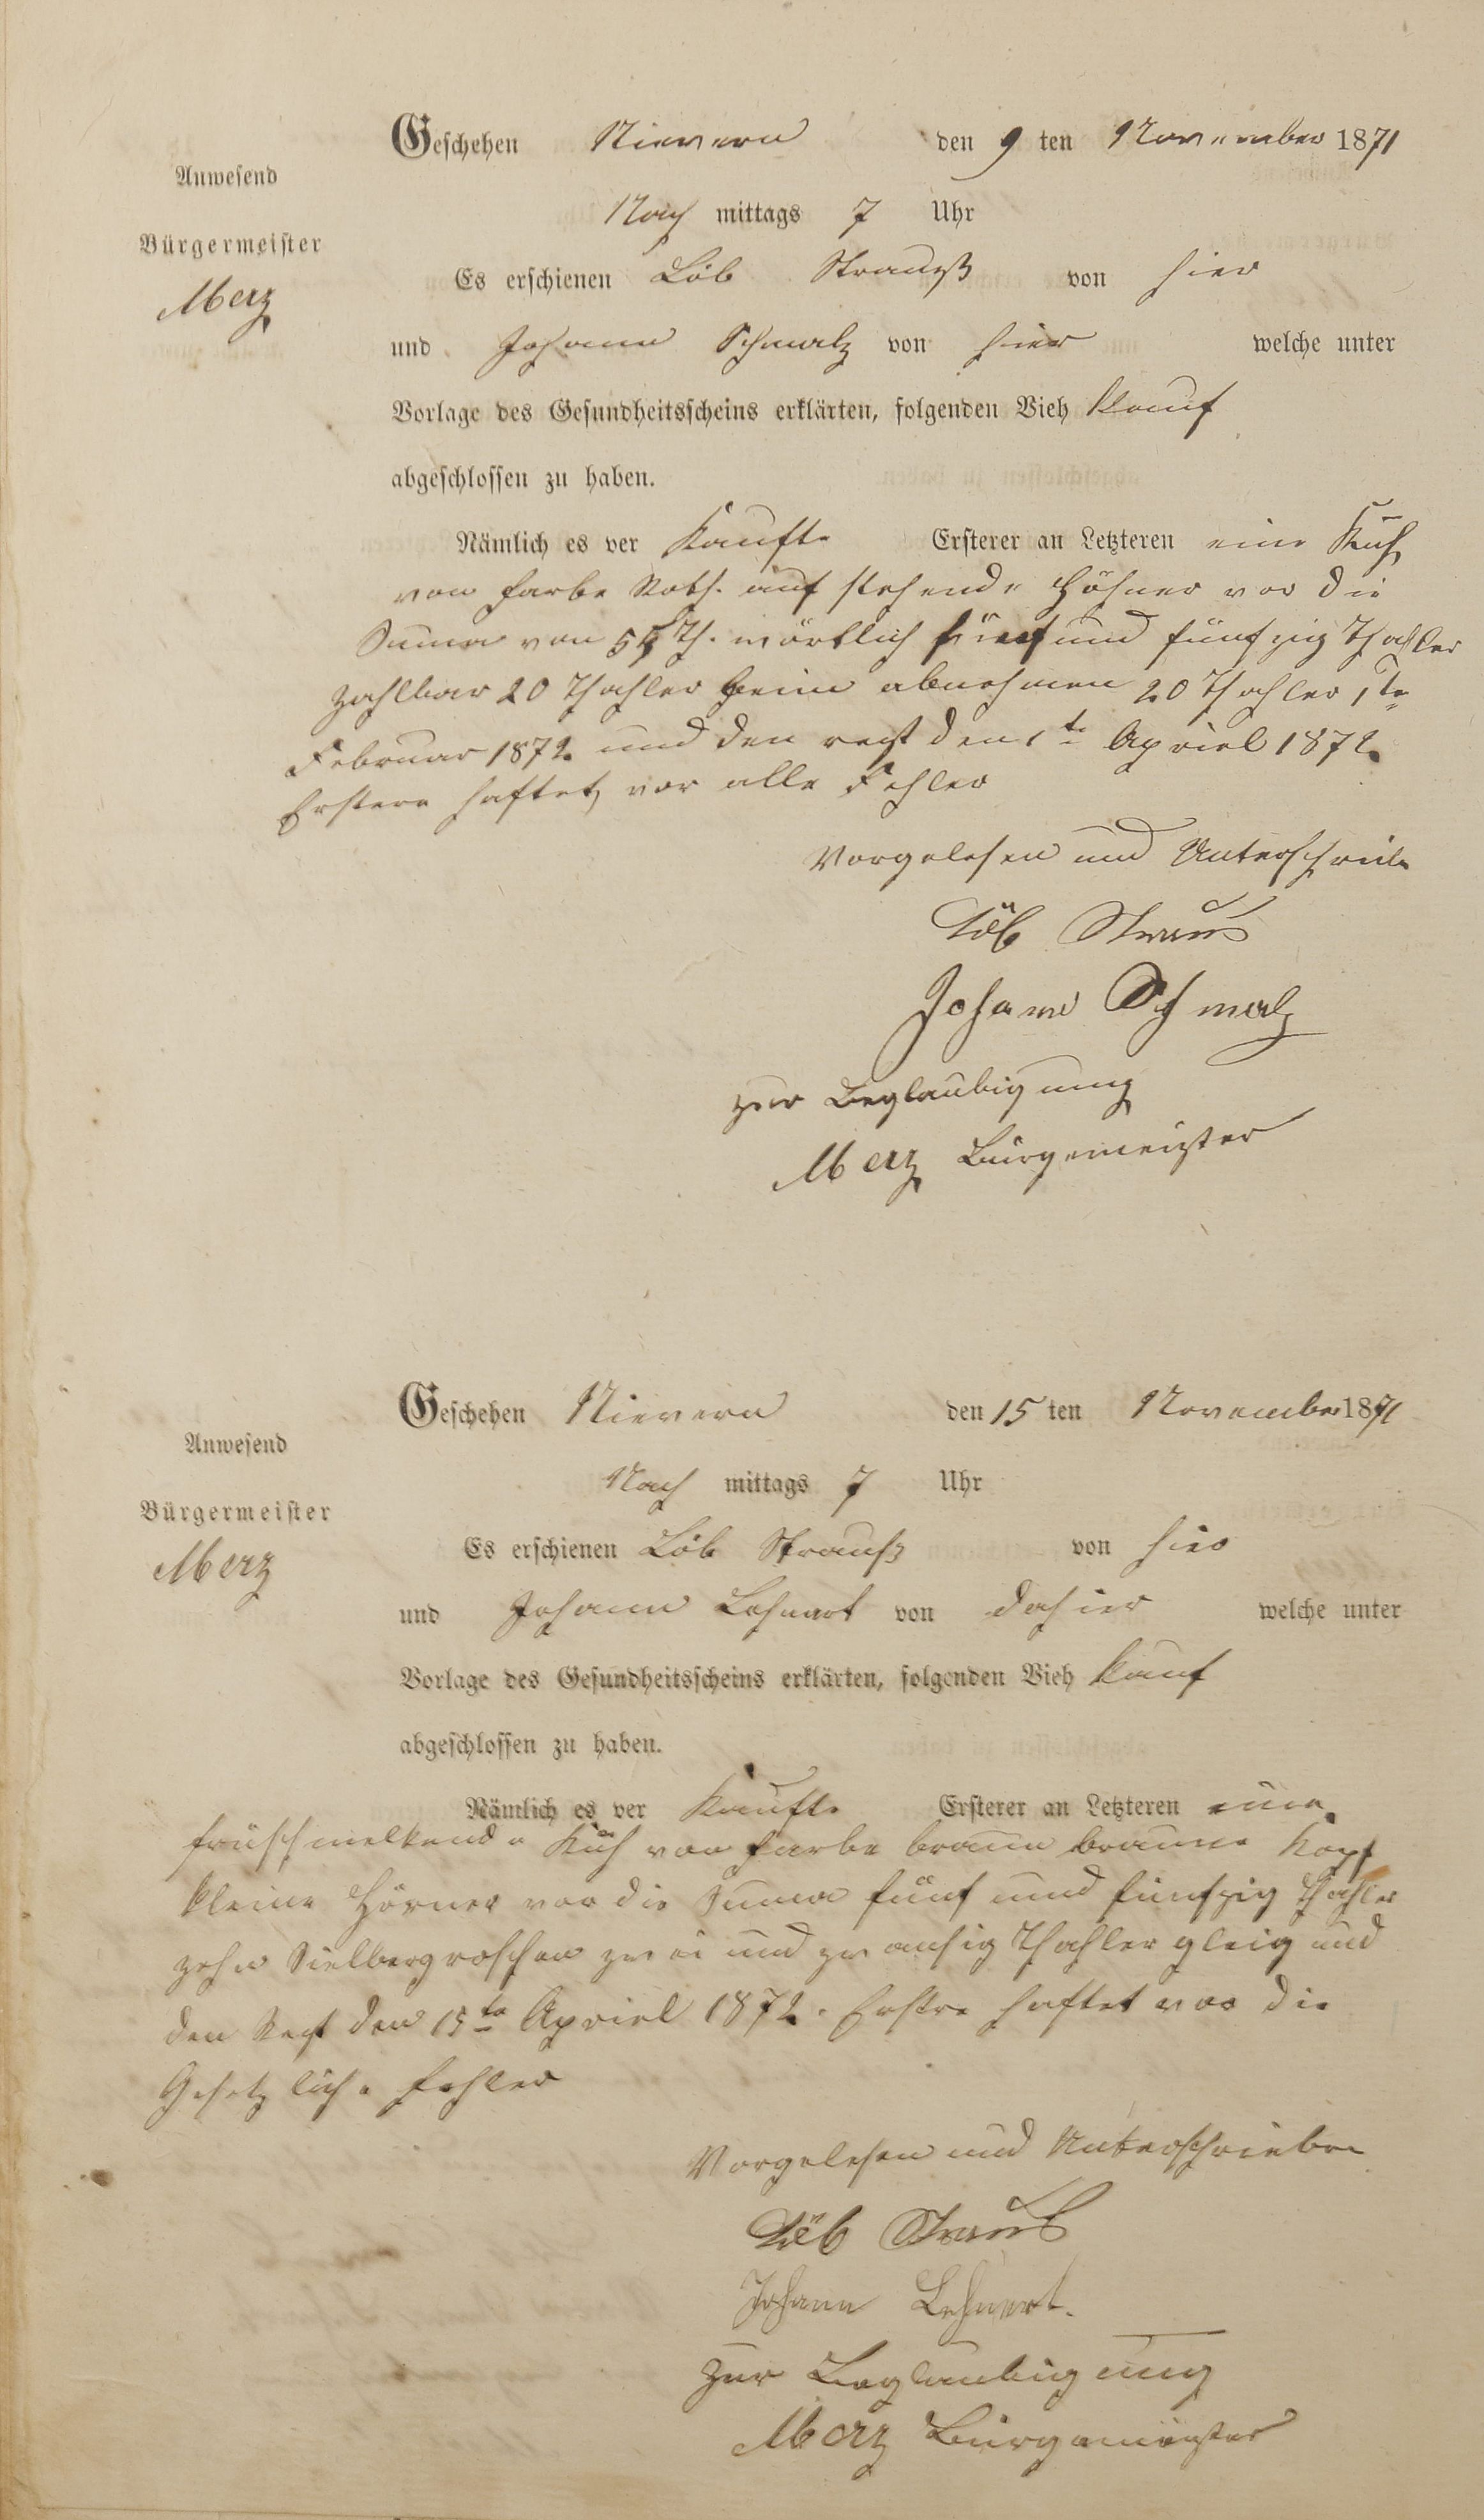 Geschehen Nievern den 9 ten November 1871
Anwesend
Nach mittags 7 Uhr
Bürgermeister
Es erschienen Löb Strauß von hier
Merz
und Johann Schmalz von hier welche unter
Vorlage des Gesundheitsscheins erklärten, folgenden Vieh Kauf
abgeschlossen zu haben.
Nämlich es ver Kaufte Ersterer an Letzteren eine Kuh
von farbe Roth. auf stehende Höhner vor die
Suma von 55 Th. wörtlich fünf und fünfzig Thahler
zahlbar 20 Thahler beim abnehmen 20 Thahler 1te
Februar 1872 und den rest den 1te Apriel 1872
Erstere haftet vor alle Fehler
Vorgelesen und Unterschrieben
Löb Straus
Johann Schmalz
zur Beglaubigung
Merz Bürgemeister
Geschehen Nievern den 15 ten November 1871
Anwesend
Nach mittags 7 Uhr
Bürgermeister
Es erschienen Löb Strauß von hier
Merz
und Johann Lehnert von dahier welche unter
Vorlage des Gesundheitsscheins erklärten, folgenden Vieh Kauf
abgeschlossen zu haben.
Nämlich es ver Kaufte Ersterer an Letzteren eine
früschmelkende Kuh von farbe braun braune Kopf
kleine Hörner vor die Suma fünf und fünfzig Thahler
zehn Sielbergroschen zwei und zwansig Thahler gleig und
den Rest den 15te Apriel 1872. Erstre haftet vor die
Gesetzliche fehler
Vorgelesen und Unterschrieben
Löb Straus
Johann Lehnert.
Zur Beglaubigung
Merz Bürgemeister